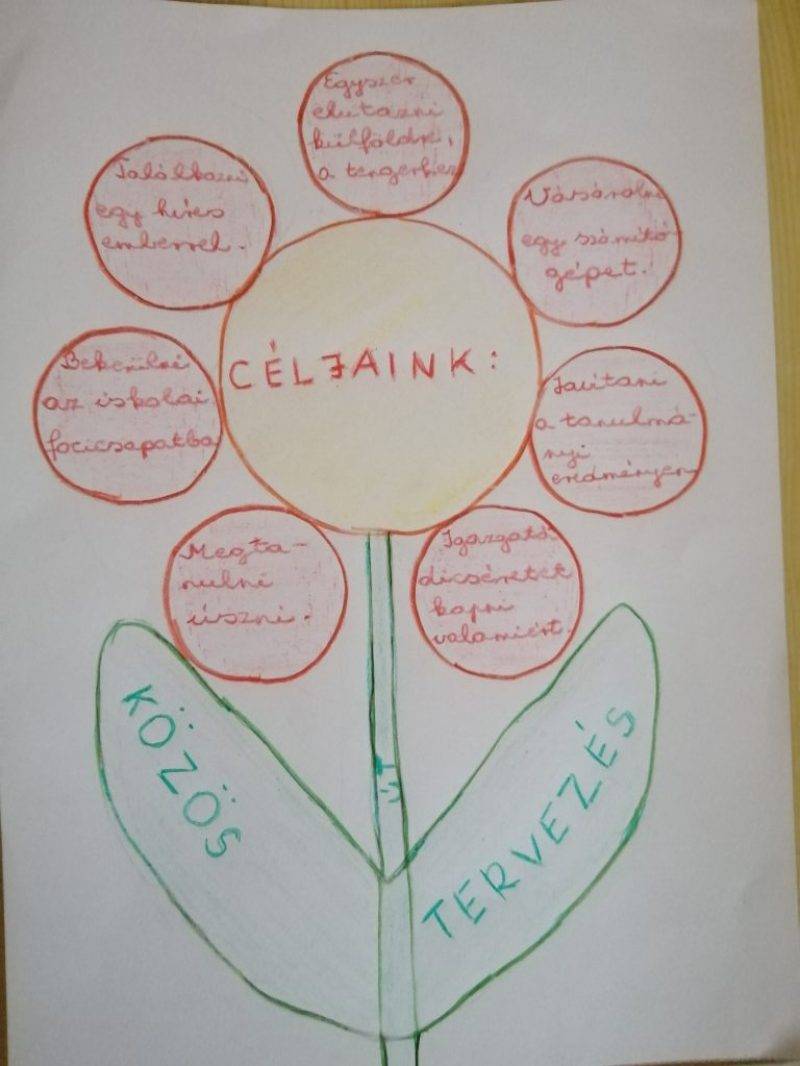 Egyszer
elutazni
külföldre,
a tengerhez
Találkozni
egy híres
emberrel.
Vásárolni
egy számító
gépet.
CÉLJAINK:
Bekerülni
az iskolai
focicsapatba
Javítani
a tanulmá-
nyi
eredményen
Megta-
nulni
úszni.
Igazgatói
dicséretet
kapni
valamiért.
KÖZÖS
ÚT
TERVEZÉS